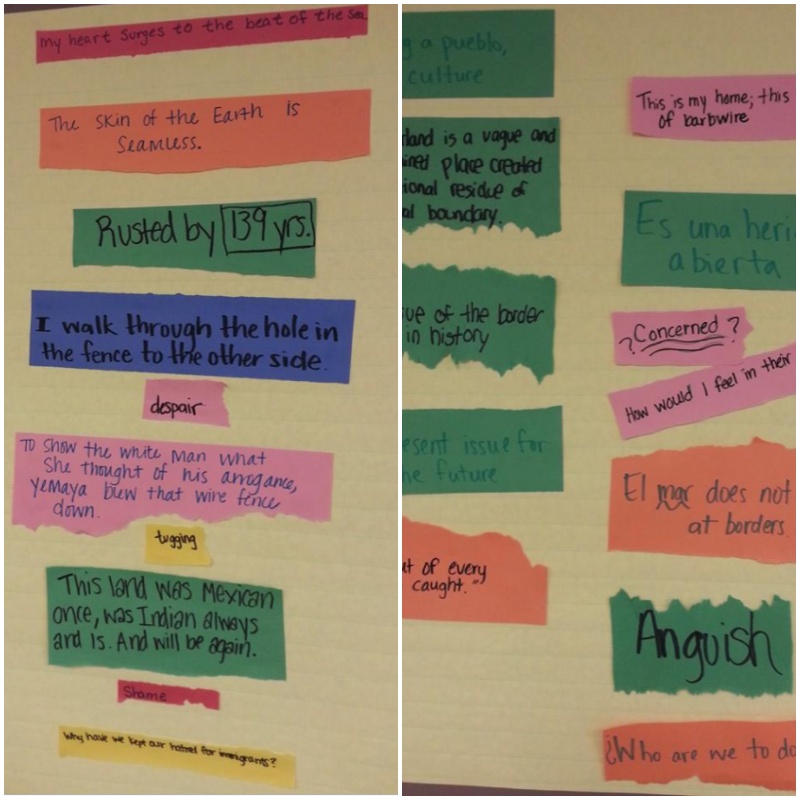 my heart surges to the beat of the sea.
The skin of the Earth is
Seamless.
Rusted by 139 yrs.
I walk through the hole in
the fence to the other side.
despair
To show the white man what
She thought of his arrogance,
Yemaya blew that wire fence
down.
tugging
This land was Mexican
once, was Indian always
and is. And will be again.
Shame
Why have we kept our hatred for immigrants?
g a pueblo,
culture
land is a vague and
ined place created
ional residue of
al boundary.
ue of the border
in history
esent issue for
e future
t of every
caught."
This is my home; this
of barbwire
Es una heri
abierta
?Concerned?
How would I feel in their
El mar does not
at borders.
Anguish
¿Who are we to do